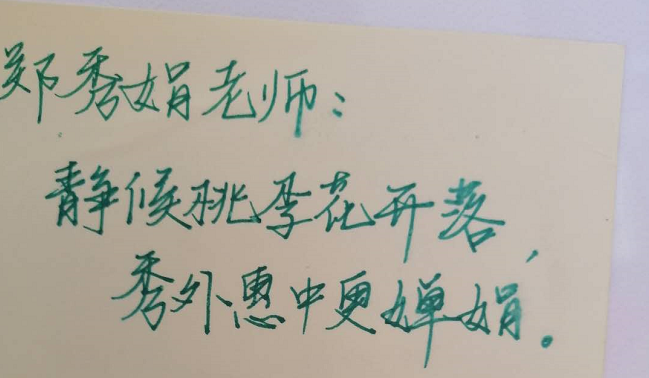 郑秀娟老师：
静候桃李花开落，
秀外惠中更婵娟。